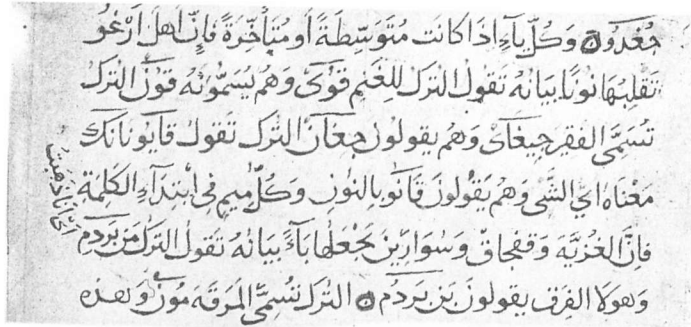 جُغدَو ۝ وَكُلّ يآءٍ اذَا كانَت مُتَوَسِّطَةً اَو مُتَأخِّرَةً فَإِنَّ اَهلَ اَرْغُو
تَقلِبُهَا نُونًا بيَانهُ تَقولُ التركُ لِلغَنم قوُىْ وَهُم يُسَمُّونَهُ قوُنْ التركُ
تُسَمِّى الفقِر جيغآىْ وَهُم يقولون جغآنْ التُرك تَقولُ قايُو نانكْ
مَعْنَاهُ اىّ الشَّىِ وَهُم يَقُولونَ قَانُو بالنونِ وَكُلّ ميمٍ فى ابْتِدآءِ الكلِمَةِ
فَإِنَّ الغُزيَّه وَقفجاقْ وَسُوَارِينَ تجْعَلهَا بآءً بيَانُهُ تَقولُ التركُ مَن بَردم
وَهولآءِ الفِرَق يقولونَ بَن بَردُم ۝ التركُ تُسَمِّى المرَقَه مُونْ وَهذه